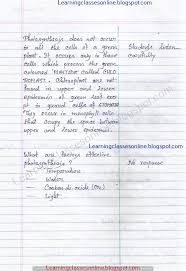 Learningclassesonline.blogspot.com
Photosynthesis does not occur
in all the cells of a green
plant. It occurs only in those
cells which process the green
coloured called CHLO
Chloroplast are not
found in upper and lower
epidermis of green leaf except
in guard cells of
They occurs in mesophyll cells
that occupy the space between
upper and lower epidermis.
Students listen
carefully
What are factors affecting
photosynthesis?
- Temperature
- Water
- Carbon di oxide (CO2)
- Light
No response
Learningclassesonline.blogspot.com